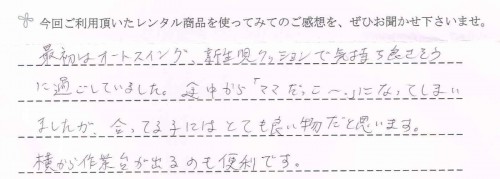 今回ご利用頂いたレンタル商品を使ってみてのご感想を、ぜひお聞かせ下さいませ。
最初はオートスイング、新生児クッションで気持ち良さそう
に過ごしていました。途中から「ママだっこ〜」になってしまい
ましたが、合ってる子にはとても良い物だと思います。
横から作業台が出るのも便利です。